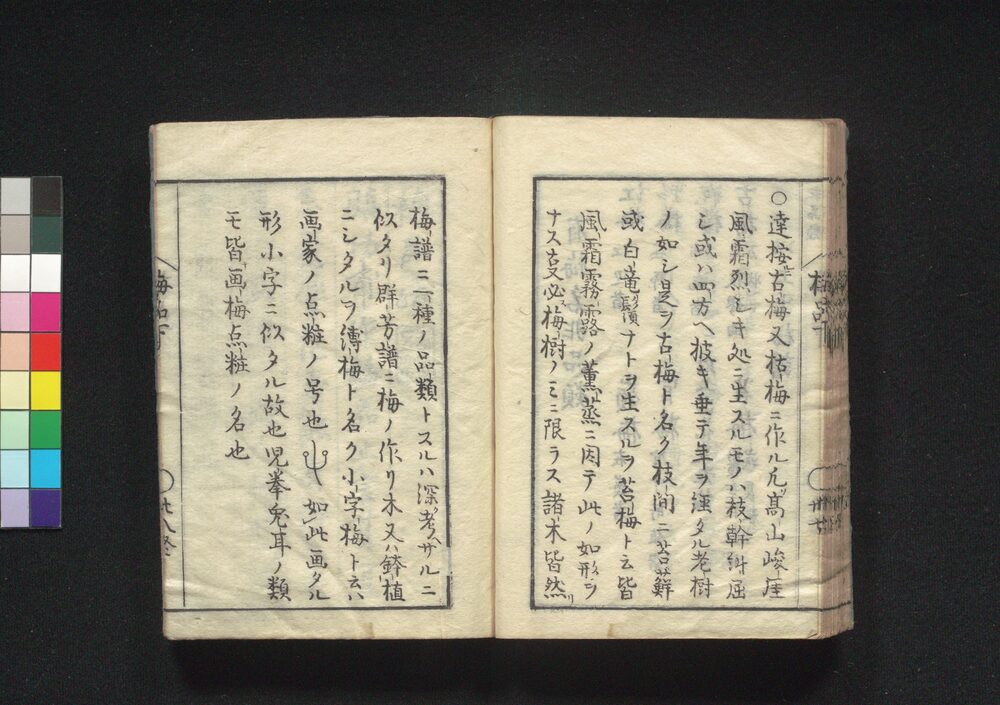 ○達按古梅又枯梅ニ作ル凡高山峻崖
風霜烈シキ処ニ生スルモノハ枝幹糾屈
シ或ハ四方ヘ披キ垂テ年ヲ経タル老樹
ノ如シ是ヲ古梅ト名ク枝間ニ苔蘚
或白竜鬚ナトヲ生スルヲ苔梅ト云皆
風霜霧露ノ薫蒸ニ因テ此ノ如形ヲ
ナス支必梅樹ノミニ限ラス諸木皆然リ
梅譜ニ一種ノ品類トスルハ深考ザルニ
似タリ群芳譜ニ梅ノ作リ木又ハ鉢植
ニシタルヲ縛梅ト名ク小字梅ト云ハ
画家ノ点粧ノ号也如此画タル
形小字ニ似タル故也児拳兎耳ノ類
モ皆画梅点粧ノ名也
廿八終